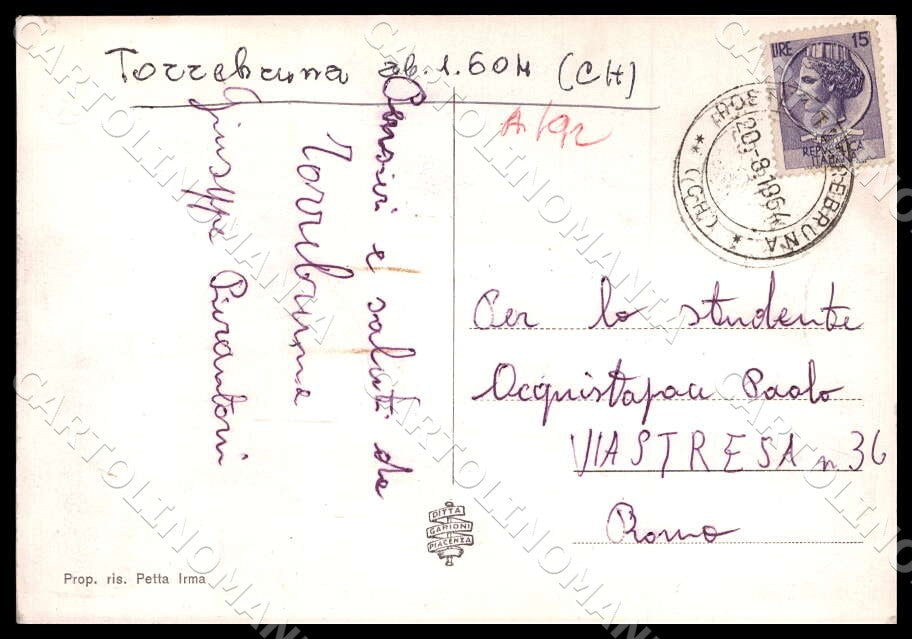 Torrebruna ab. 1.604 (CH)
A/92
LIRE 15
REPUBBLICA
ITALIANA
TORREBRUNA * (CH) **
20-8-1964
Pensieri e saluti da
Torrebruna
Giuseppe Pierantoni
Per lo studente
Acquistapace Paolo
VIA STRESA n 36
Roma
DITTA
GARIONI
PIACENZA
Prop. ris. Petta Irma
CARTOLINOMANIA